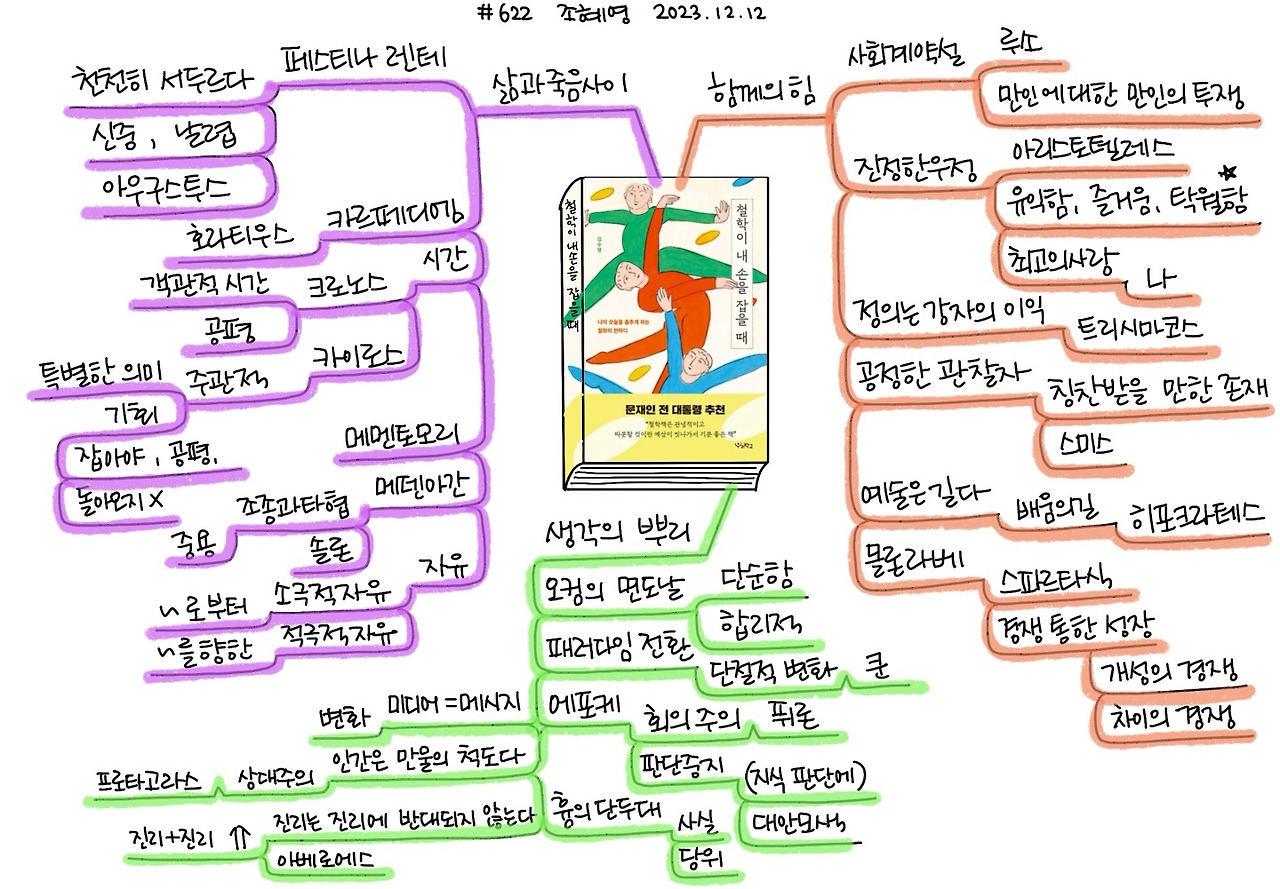 #622 조혜영 2023.12.12
삶과죽음사이
페스티나 렌테
천천히 서두르다
신중, 날렵
아우구스투스
카르페디엠
호라티우스
시간
크로노스
객관적 시간
공평
카이로스
주관적
특별한 의미
기회
잡아야, 공평,
돌아오지 X
메멘토모리
메덴아간
조종과타협
중용
솔론
자유
소극적자유
~로부터
적극적자유
~를향한
함께의 힘
사회계약설
루소
만인에대한 만인의 투쟁
진정한우정
아리스토텔레스
유익함, 즐거움, 탁월함
최고의사랑
나
정의는 강자의 이익
트리시마코스
공정한 관찰자
칭찬받을 만한 존재
스미스
예술은길다
배움의길
히포크라테스
몰론라베
스파르타식
경쟁 통한 성장
개성의 경쟁
차이의 경쟁
철학이 내손을 잡을때
철학이 내 손을 잡을 때
김수영
나의 오늘을 춤추게 하는
철학의 한마디
문재인 전 대통령 추천
"철학책은 관념적이고
따분할 것이란 예상이 빗나가서 기분 좋은 책"
생각의 뿌리
오컴의 면도날
단순함
합리적
패러다임 전환
단절적 변화
쿤
에포케
회의 주의
퓌론
판단중지
(지식 판단에)
대안모색
흄의 단두대
사실
당위
미디어=메시지
변화
인간은 만물의 척도다
상대주의
프로타고라스
진리는 진리에 반대되지 않는다
진리+진리 ⇑
아베로에스